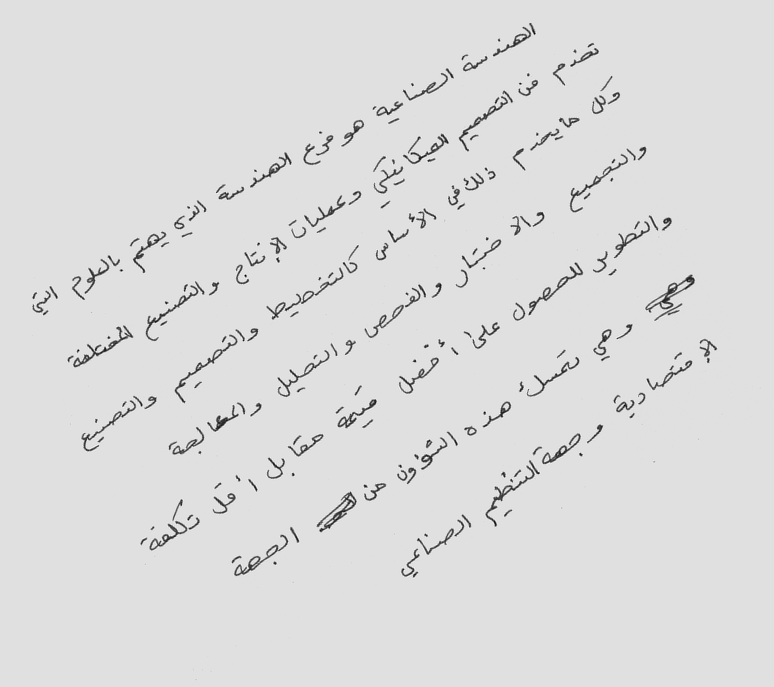 الهندسة الصناعية هو فرع الهندسة الذي يهتم بالعلوم التي
تخدم فن التصميم الميكانيكي وعمليات الإنتاج والتصنيع المختلفة
وكل ما يخدم ذلك في الأساس كالتخطيط والتصميم والتصنيع
والتجميع والاختبار والفحص والتحليل والمعالجة
والتطوير للحصول على أفضل قيمة مقابل أقل تكلفة
وهي تمسك هذه الشؤون من الجهة
الإقتصادية وجهة التنظيم الصناعي